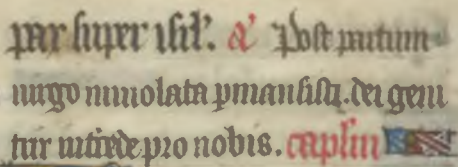 pax super isrl'. a' Post partum
uirgo inuiolata pmansisti. dei geni
trix intcede pro nobis. caplm